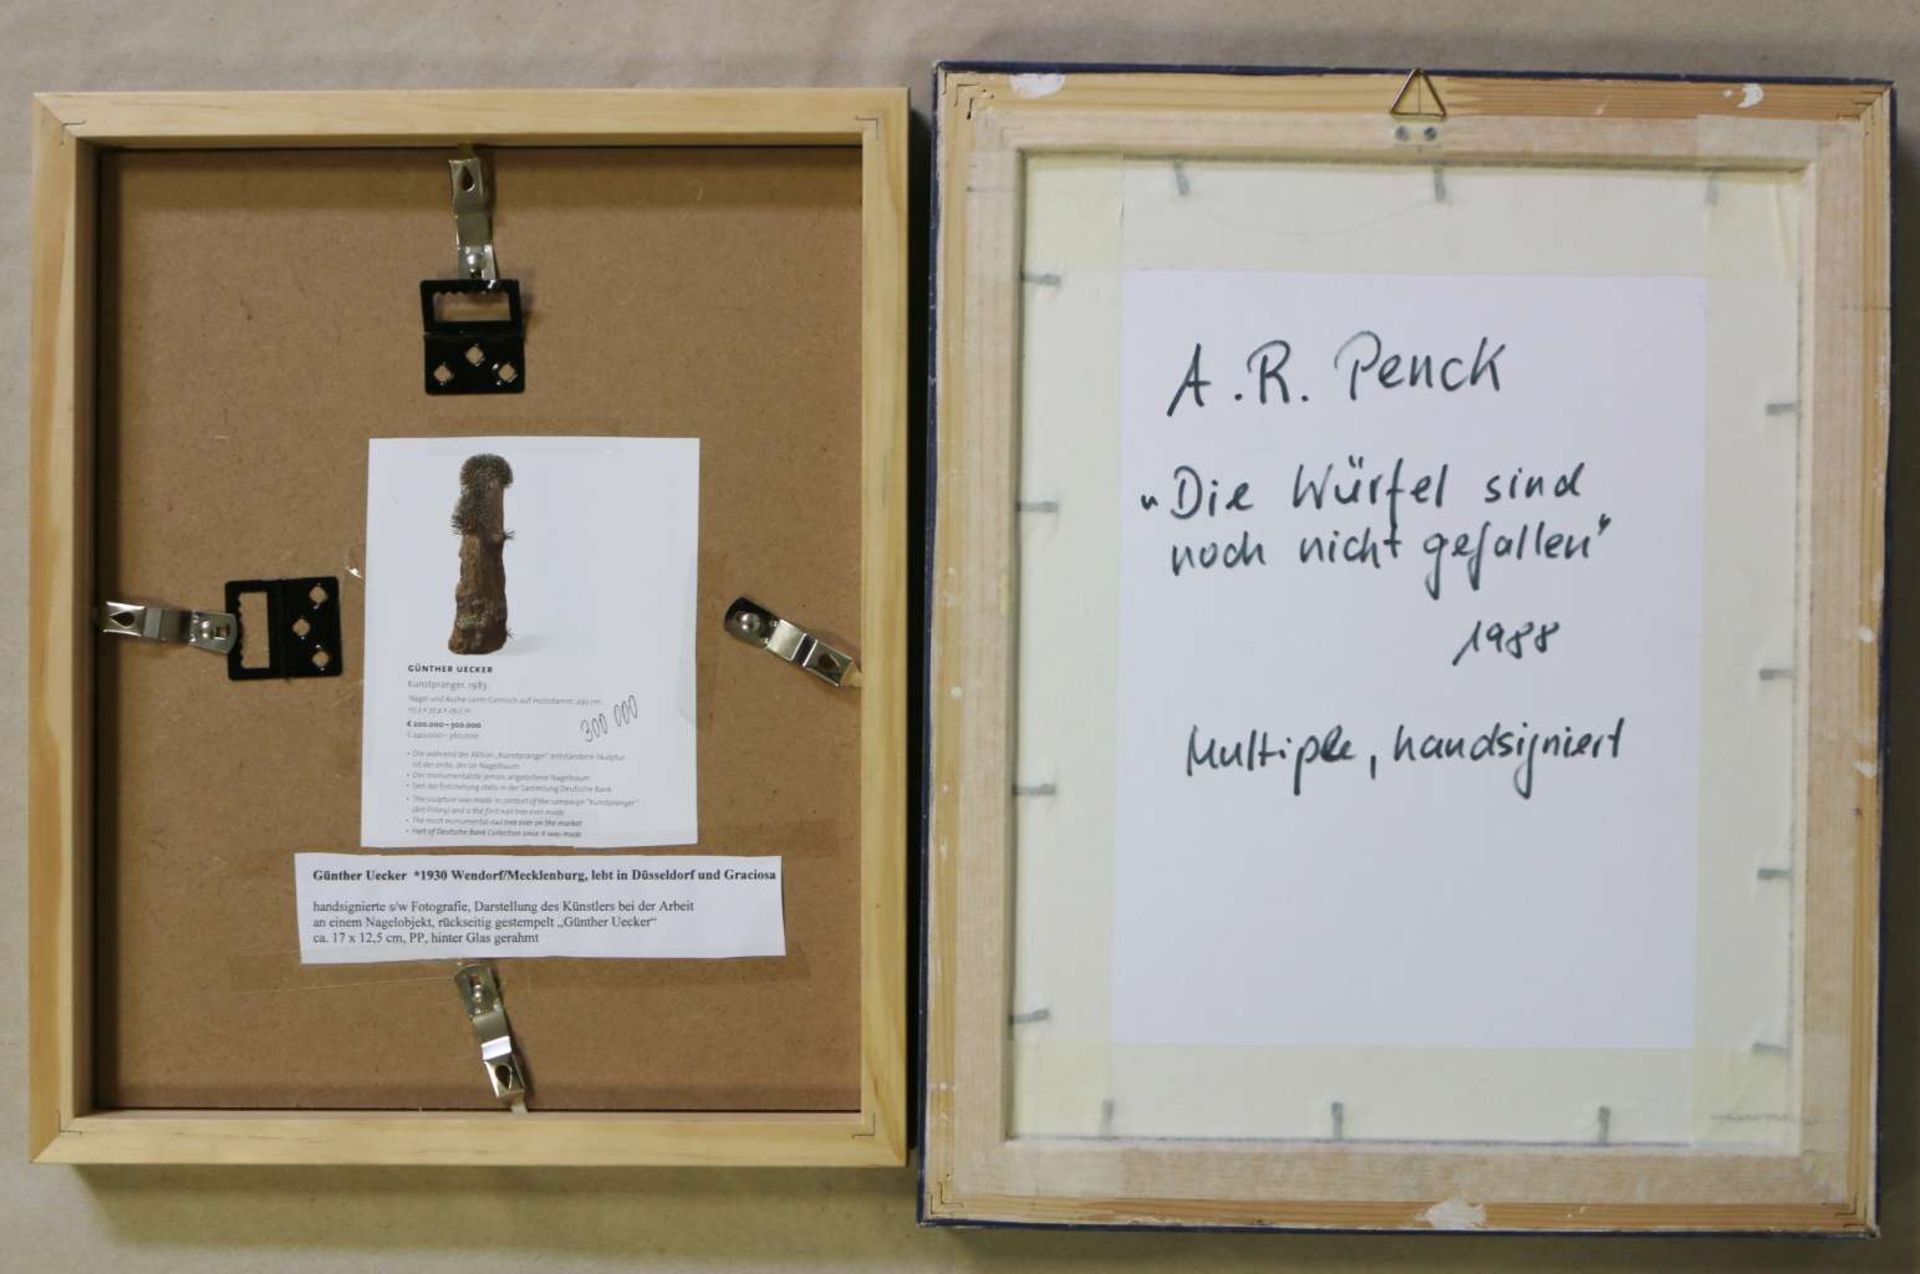 GÜNTHER UECKER
Kunstpranger, 1983
Nägel und Asche-Leim-Gemisch auf Holzstamm, 290 cm
€ 200.000–300.000
$ 240,000–360,000
300 000
• Die während der Aktion „Kunstpranger" entstandene Skulptur
ist der erste, der Ur-Nagelbaum
• Der monumentalste jemals angebotene Nagelbaum
• Seit der Entstehung stets in der Sammlung Deutsche Bank
• The sculpture was made in context of the campaign "Kunstpranger"
(Art Pillory) and is the first nail tree ever made
• The most monumental nail tree ever on the market
• Part of Deutsche Bank Collection since it was made
Günther Uecker *1930 Wendorf/Mecklenburg, lebt in Düsseldorf und Graciosa
handsignierte s/w Fotografie, Darstellung des Künstlers bei der Arbeit
an einem Nagelobjekt, rückseitig gestempelt „Günther Uecker“
ca. 17 x 12,5 cm, PP, hinter Glas gerahmt
A.R. Penck
„Die Würfel sind
noch nicht gefallen"
1988
Multiple, handsigniert